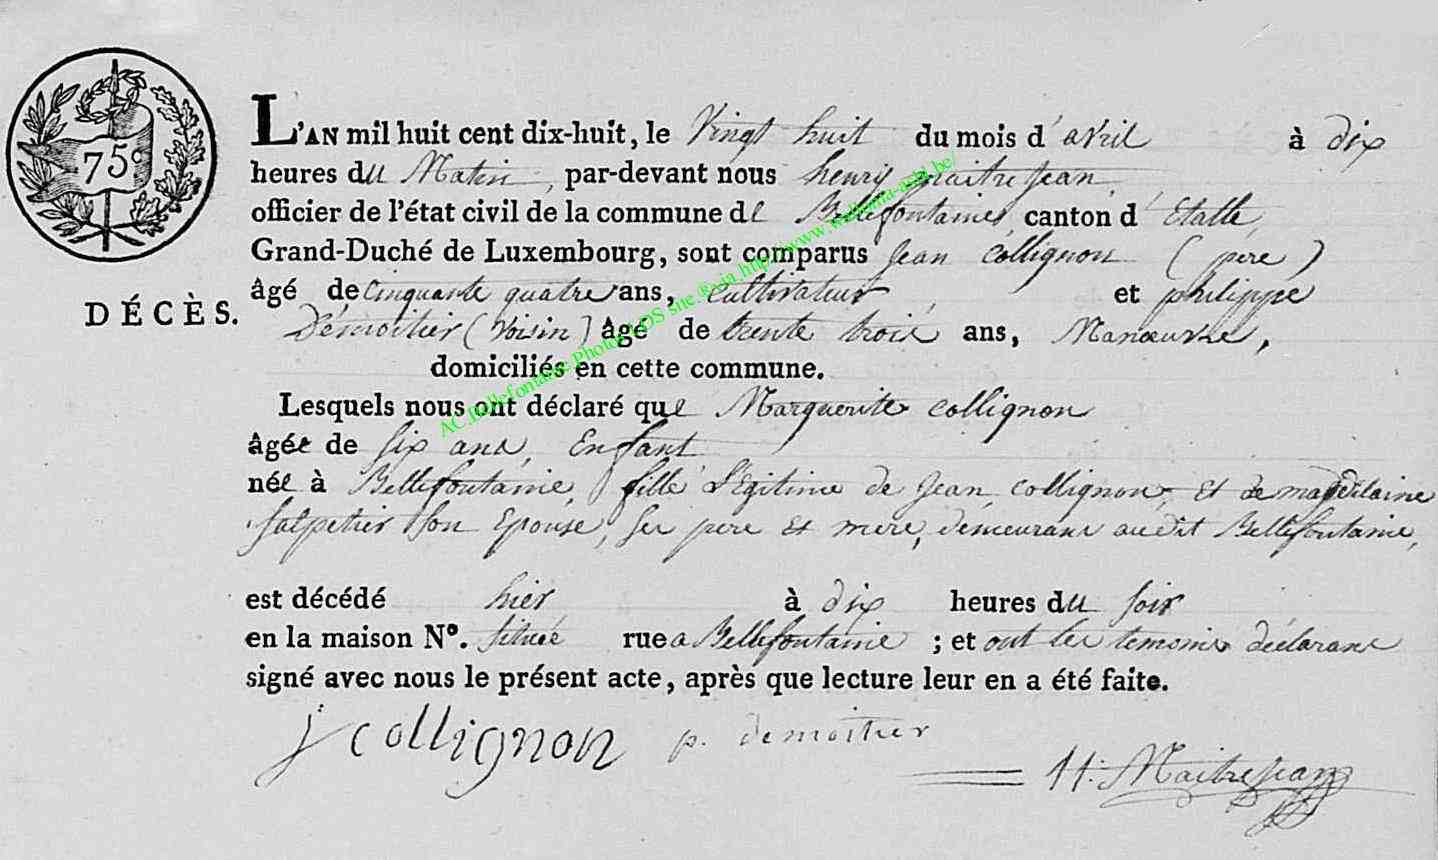 75c
L'AN mil huit cent dix-huit, le Vingt huit du mois d'avril à dix
heures du Matin, par-devant nous henry maitrejean,
officier de l'état civil de la commune de Bellefontaine, canton d'Etalle,
Grand-Duché de Luxembourg, sont comparus Jean Collignon (pere)
DÉCÈS.
âgé de Cinquante quatre ans, Cultivateur, et philippe
Démoitier (Voisin) âgé de trente trois ans, Manœuvre,
domiciliés en cette commune.
Lesquels nous ont déclaré que Marguerite Collignon
âgée de six ans, Enfant
née à Bellefontaine, fille Légitime de Jean Collignon, et de madelaine
Salpetier son Epouse, ses pere et mere, demeurans audit Bellefontaine,
est décédé hier à dix heures du soir
en la maison N°. située rue a Bellefontaine ; et ont les temoins déclarans
signé avec nous le présent acte, après que lecture leur en a été faite.
j collignon p. demoitier
H. Maitrejean